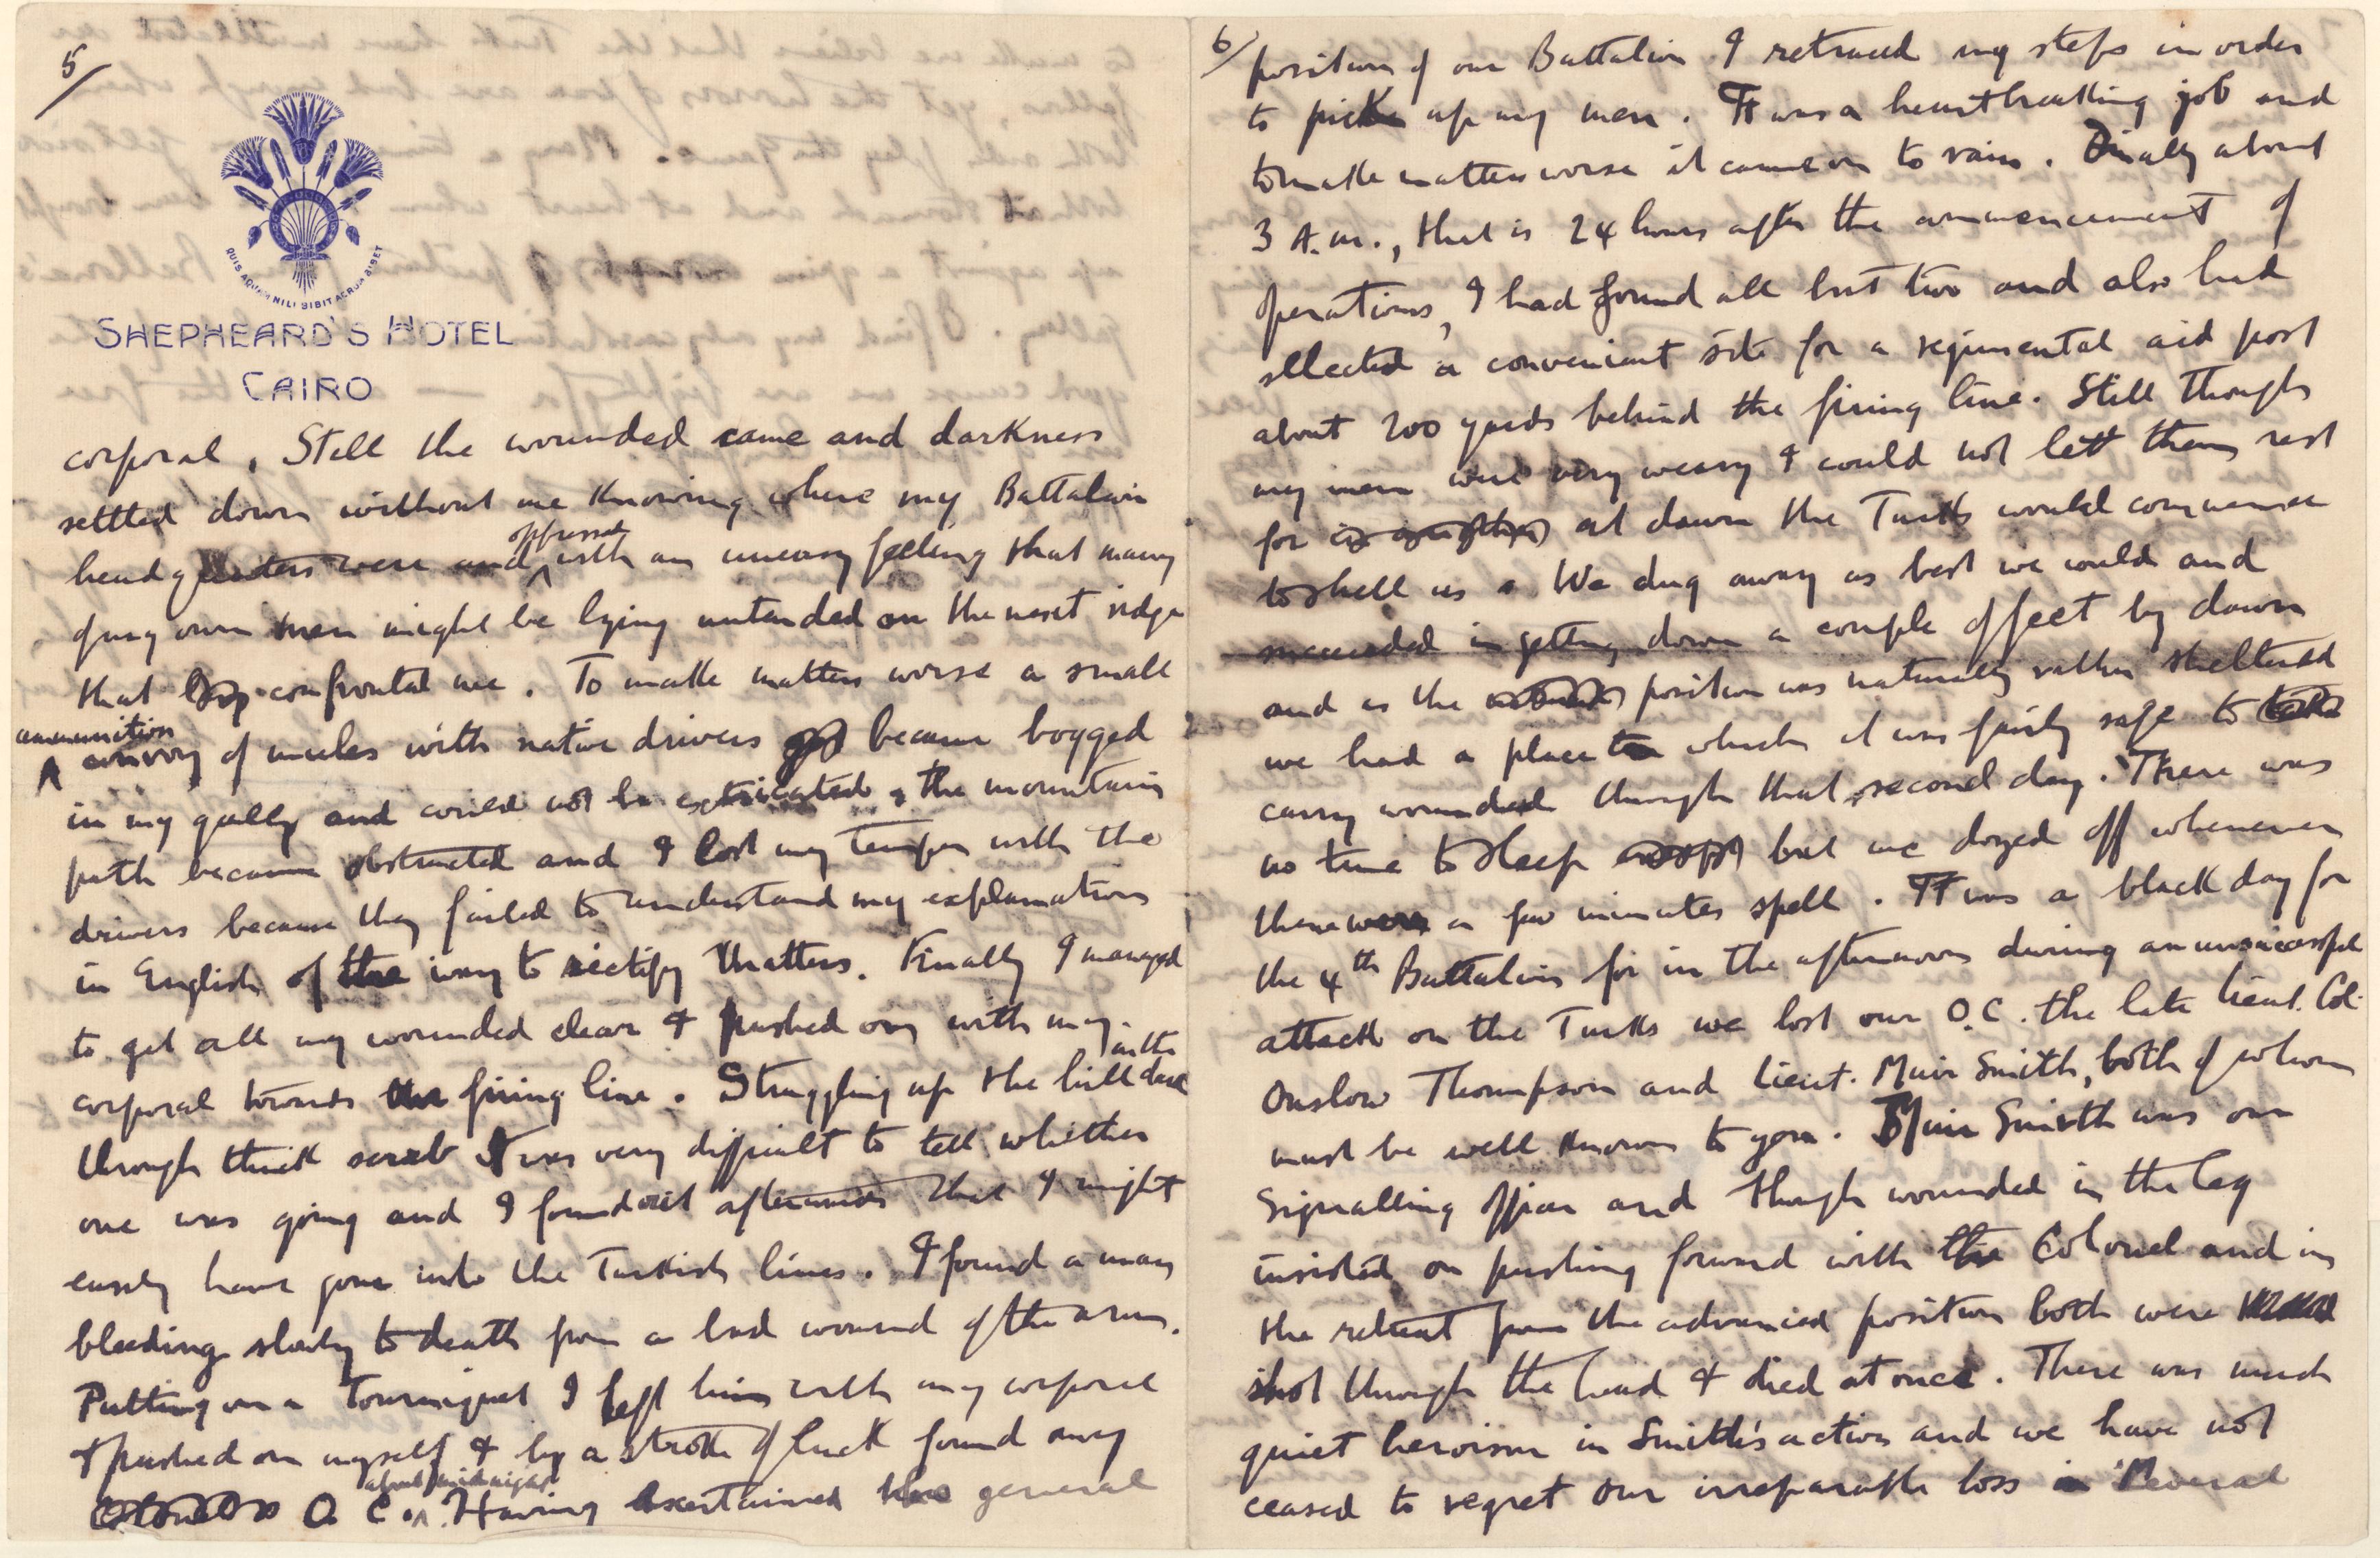 5/
QUIS AQUAM NILI BIBIT AERUM BIBET
SHEPHEARD'S HOTEL
CAIRO
corporal. Still the wounded came and darkness
settled down without me knowing where my Battalion
headquarters were and oppressed with an uneasy feeling that many
of my own men might be lying untended on the next ridge
that confronted me. To make matters worse a small
ammunition convoy of mules with native drivers became bogged
in my gully and could not be extricated, the mountain
path became obstructed and I lost my temper with the
drivers because they failed to understand my explanation
in English of the way to rectify matters. Finally I managed
to get all my wounded clear & pushed on with my
corporal towards the firing line. Struggling up the hill in the dark
through thick scrub it was very difficult to tell whither
one was going and I found out afterwards that I might
easily have gone into the Turkish lines. I found a man
bleeding slowly to death from a bad wound of the arm.
Putting on a Tourniquet I left him with my corporal
& pushed on myself & by a stroke of luck found my
O.C. about midnight. Having ascertained the general
6/
position of our Battalion I retraced my steps in order
to pick up my men. It was a heartbreaking job and
to make matters worse it came on to rain. Finally about
3 A.m., that is 24 hours after the commencement of
operations, I had found all but two and also had
selected a convenient site for a regimental aid post
about 200 yards behind the firing line. Still though
my men were very weary I could not let them rest
for at dawn the Turks would commence
to shell us. We dug away as best we could and
succeeded in getting down a couple of feet by dawn
and as the position was naturally rather sheltered
we had a place to which it was fairly safe to
carry wounded through that second day. There was
no time to sleep but we dozed off whenever
there were a few minutes spell. It was a black day for
the 4th Battalion for in the afternoon during an unsuccessful
attack on the Turks we lost our O.C. the late Lieut. Col.
Onslow Thompson and Lieut. Muir Smith, both of whom
must be well known to you. Muir Smith was our
Signalling officer and though wounded in the leg
insisted on pushing forward with the Colonel and in
the retreat from the advanced position both were
shot through the head & died at once. There was much
quiet heroism in Smith's action and we have not
ceased to regret our irreparable loss. Several